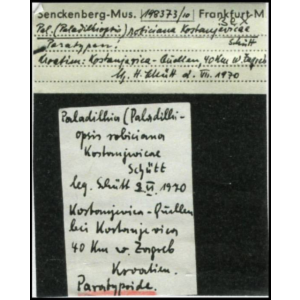 Senckenberg-Mus. 198373/10 Frankfurt-M
Pal. (Paladilhiopsis) robiciana Kostanjevicae
Schütt
Paratypen!
Kroatien: Kostanjevica-Quellen, 40 Km w. Zagreb
Slg. H. Schütt d. VII. 1970
Paladilhia (Paladilhi-
opsis robiciana
Kostanjevicae
Schütt
leg. Schütt VII 1970
Kostanjevica-Quellen
bei Kostanjevica
40 Km w. Zagreb
Kroatien.
Paratypoide.